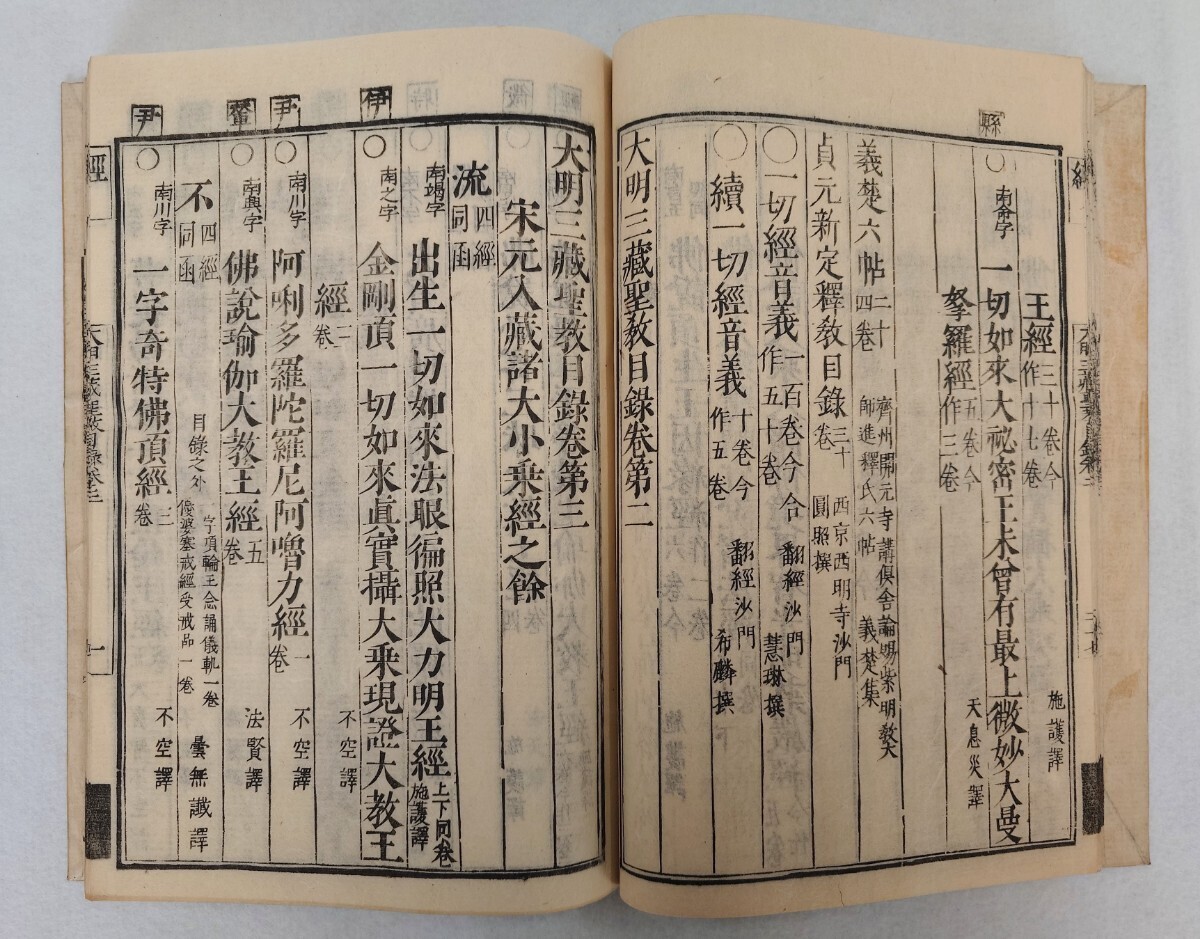 縣
王經三十卷今作十七卷 施護譯
○南命字 一切如來大祕密王未曾有最上微妙大曼
拏羅經五卷今作三卷 天息災譯
義楚六帖二十四卷 齊州開元寺講俱舍論賜紫明教大師進釋氏六帖 義楚集
貞元新定釋教目錄三十卷 西京西明寺沙門圓照撰
○一切經音義一百卷今合作五十卷 翻經沙門 慧琳撰
○續一切經音義十卷今作五卷 翻經沙門 希麟撰
大明三藏聖教目錄卷第二
大明三藏聖教目錄卷第三
宋元入藏諸大小乘經之餘
流四經同函
○南竭字 出生一切如來法眼徧照大力明王經上下同卷 施護譯
伊
○南之字 金剛頂一切如來眞實攝大乘現證大教王
經三卷 不空譯
尹
○南川字 阿唎多羅陀羅尼阿嚕力經一卷 不空譯
○南興字 佛說瑜伽大教王經五卷 法賢譯
不四經同函 目錄之外 字頂輪王念誦儀軌一卷 優婆塞戒經受戒品一卷 曇無讖譯
尹
○南川字 一字奇特佛頂經三卷 不空譯
經
一